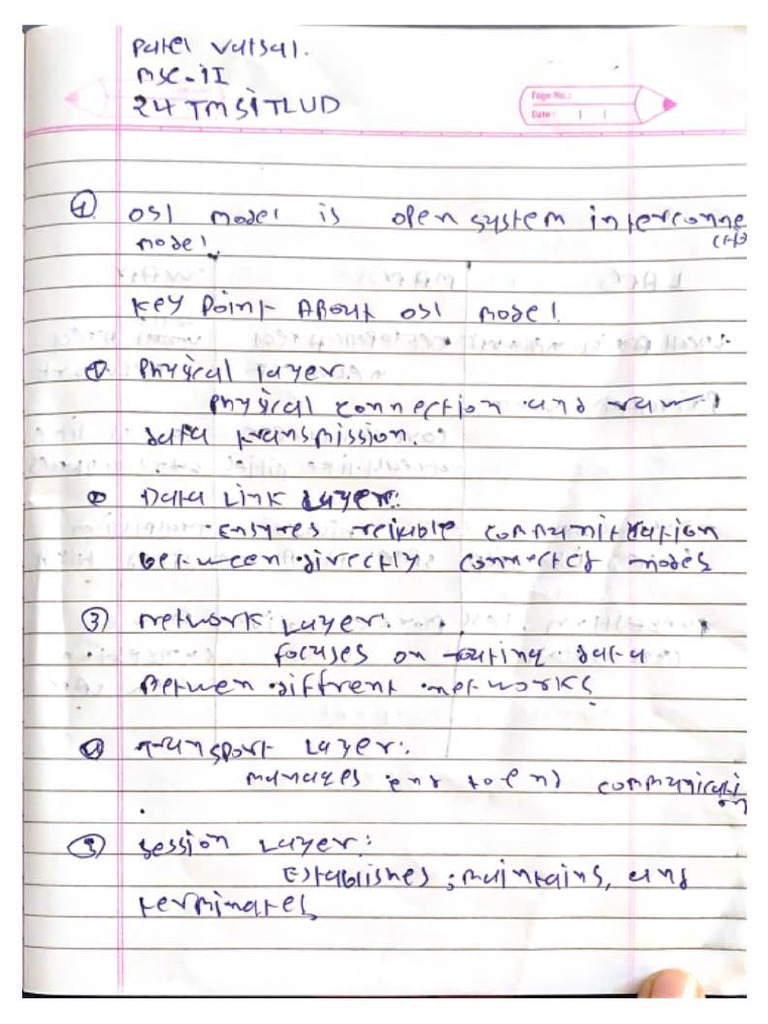 Patel Vatsal.
MSC-II
24 TMSITLUD
Page No.:
Date:
① OSI model is open system interconne
ction
model.
Key Point About OSI model.
① Physical layer:
Physical connection and raw
data transmission.
② Data Link Layer:
Ensures reliable communication
between directly connected nodes
③ Network Layer:
focuses on routing data
Between diffrent networks
④ Transport Layer:
manages end to end communicati
on
⑤ Session Layer:
Establishes, maintains, and
terminates